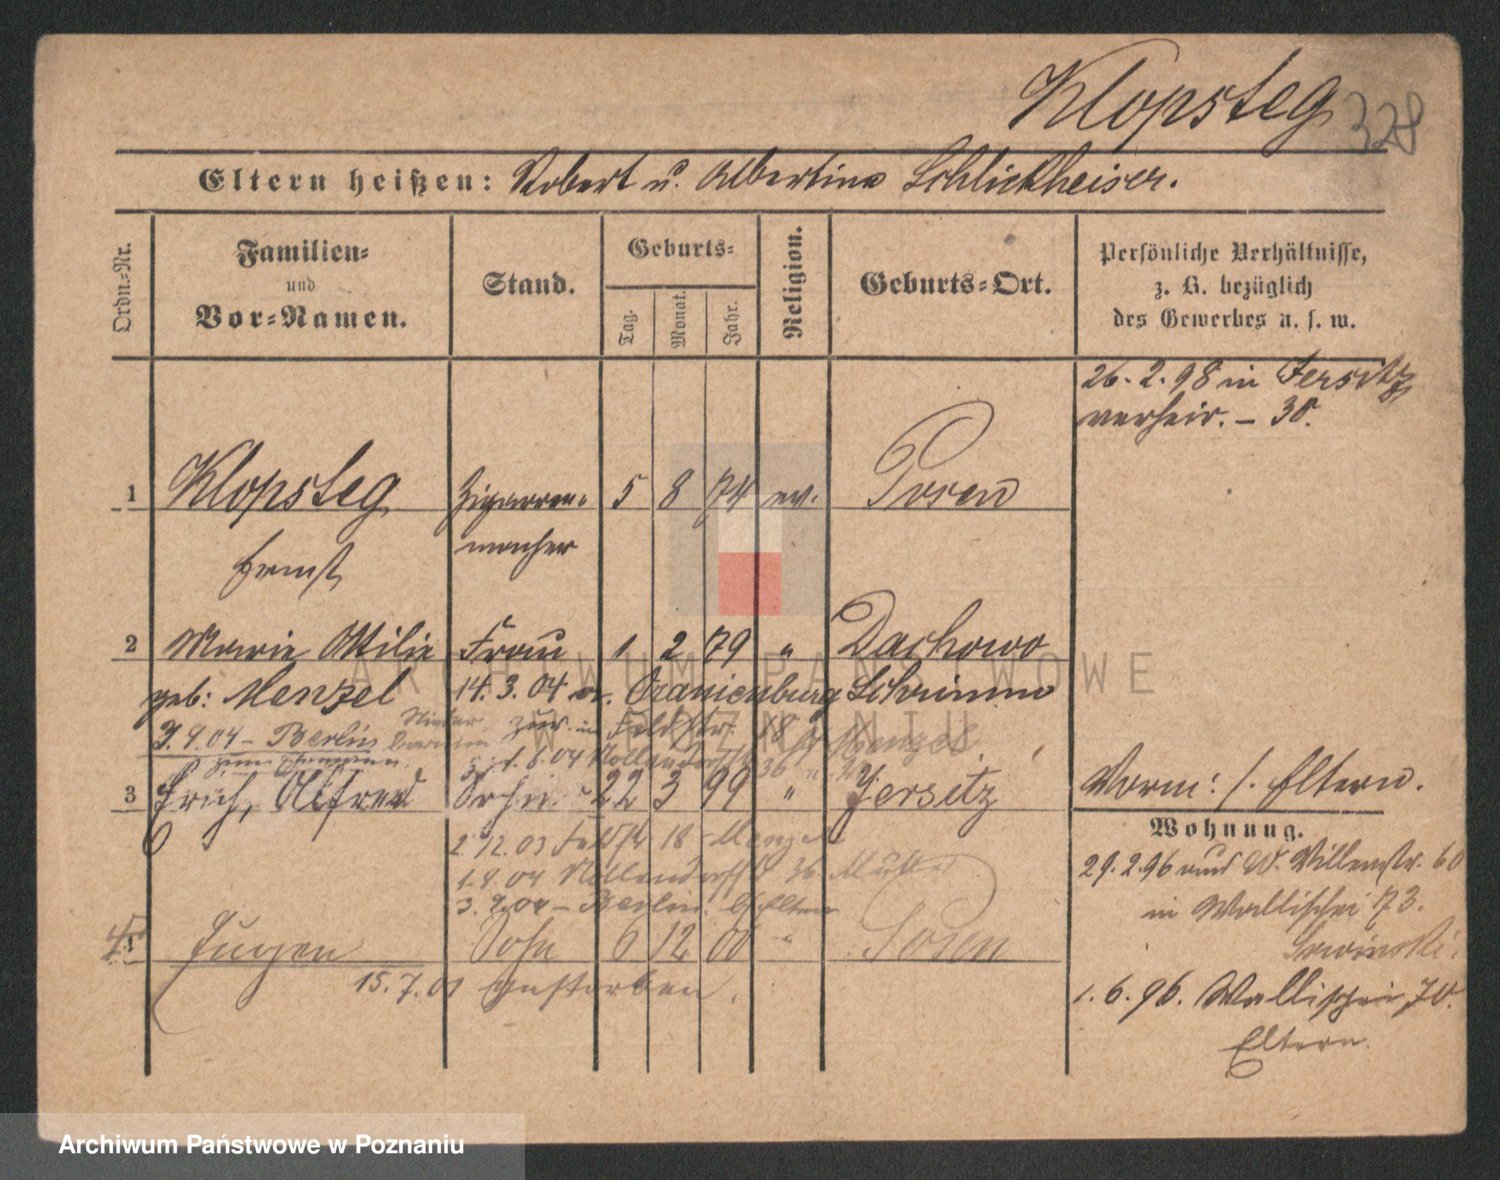 Klopsteg 328
Eltern heißen: Robert u. Albertine Schlickheiser.
Ordn.-Nr.
Familien-
und
Vor-Namen.
Stand.
Geburts-
Tag.
Monat.
Jahr.
Religion.
Geburts-Ort.
Persönliche Verhältnisse,
z. B. bezüglich
des Gewerbes u. s. w.
26. 2. 98 in Jersitz
verheir. – 30.
1 Klopsteg Zigarren- 5 8 74 ev. Posen
Ernst macher
2 Marie Ottilie Frau 1 2 79 " Dachowo
geb: Menzel 14. 3. 04 Oranienburg Schrimm
3. 9. 04 – Berlin zur. in Feldstr. 18 Menzel
zum Ehemann 1. 8. 04 Nollendorfstr 36
3 Erich, Alfred Sohn 22 3 99 " Jersitz
Vorm: /. Eltern.
Wohnung.
2. 12. 03 Feldstr 18 Menzel
1. 4. 04 Nollendorfstr 36. Mutter
3. 9. 04 – Berlin. Eltern
29. 2. 96 Villenstr. 60
in Wallischei 73.
4 Eugen Sohn 6 12 00 " Posen
15. 7. 01 gestorben.
1. 6. 96. Wallischei 70.
Eltern.
ARCHIWUM PAŃSTWOWE
W POZNANIU
Archiwum Państwowe w Poznaniu